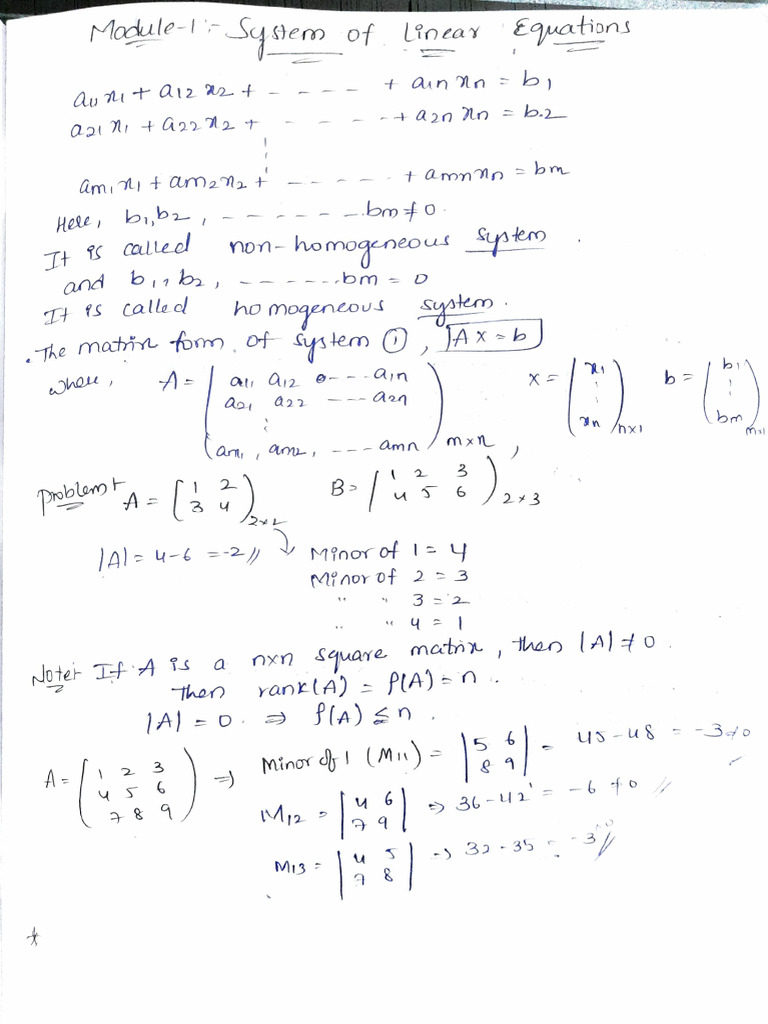 Module-1:- System of Linear Equations
a11 x1 + a12 x2 + - - - - - + a1n xn = b1
a21 x1 + a22 x2 + - - - - - + a2n xn = b2
am1 x1 + am2 x2 + - - - - - + amn xn = bm
Here, b1, b2, - - - - - - - bm ≠ 0.
It is called non-homogeneous system
and b1, b2, - - - - - - bm = 0
It is called homogeneous system.
. The matrix form of system ①, AX = b
where, A = ( a11 a12 - - - a1n x = ( x1 b = ( b1
a21 a22 - - - a2n
am1, am2, - - - amn ) m×n , xn ) n×1 bm ) m×1
Problem:- A = ( 1 2 B = ( 1 2 3
3 4 ) 2×2 4 5 6 ) 2×3
|A| = 4-6 = -2 // Minor of 1 = 4
Minor of 2 = 3
" " 3 = 2
" " 4 = 1
Note:- If A is a nxn square matrix, then |A| ≠ 0.
Then rank(A) = ρ(A) = n.
|A| = 0. ⇒ ρ(A) ≤ n.
A = ( 1 2 3 ⇒ Minor of 1 (M11) = | 5 6 = 45-48 = -3 ≠ 0
4 5 6 8 9 |
7 8 9 ) M12 = | 4 6 ⇒ 36-42 = -6 ≠ 0 //
7 9 |
M13 = | 4 5 → 32-35 = -3 //
7 8 |
*